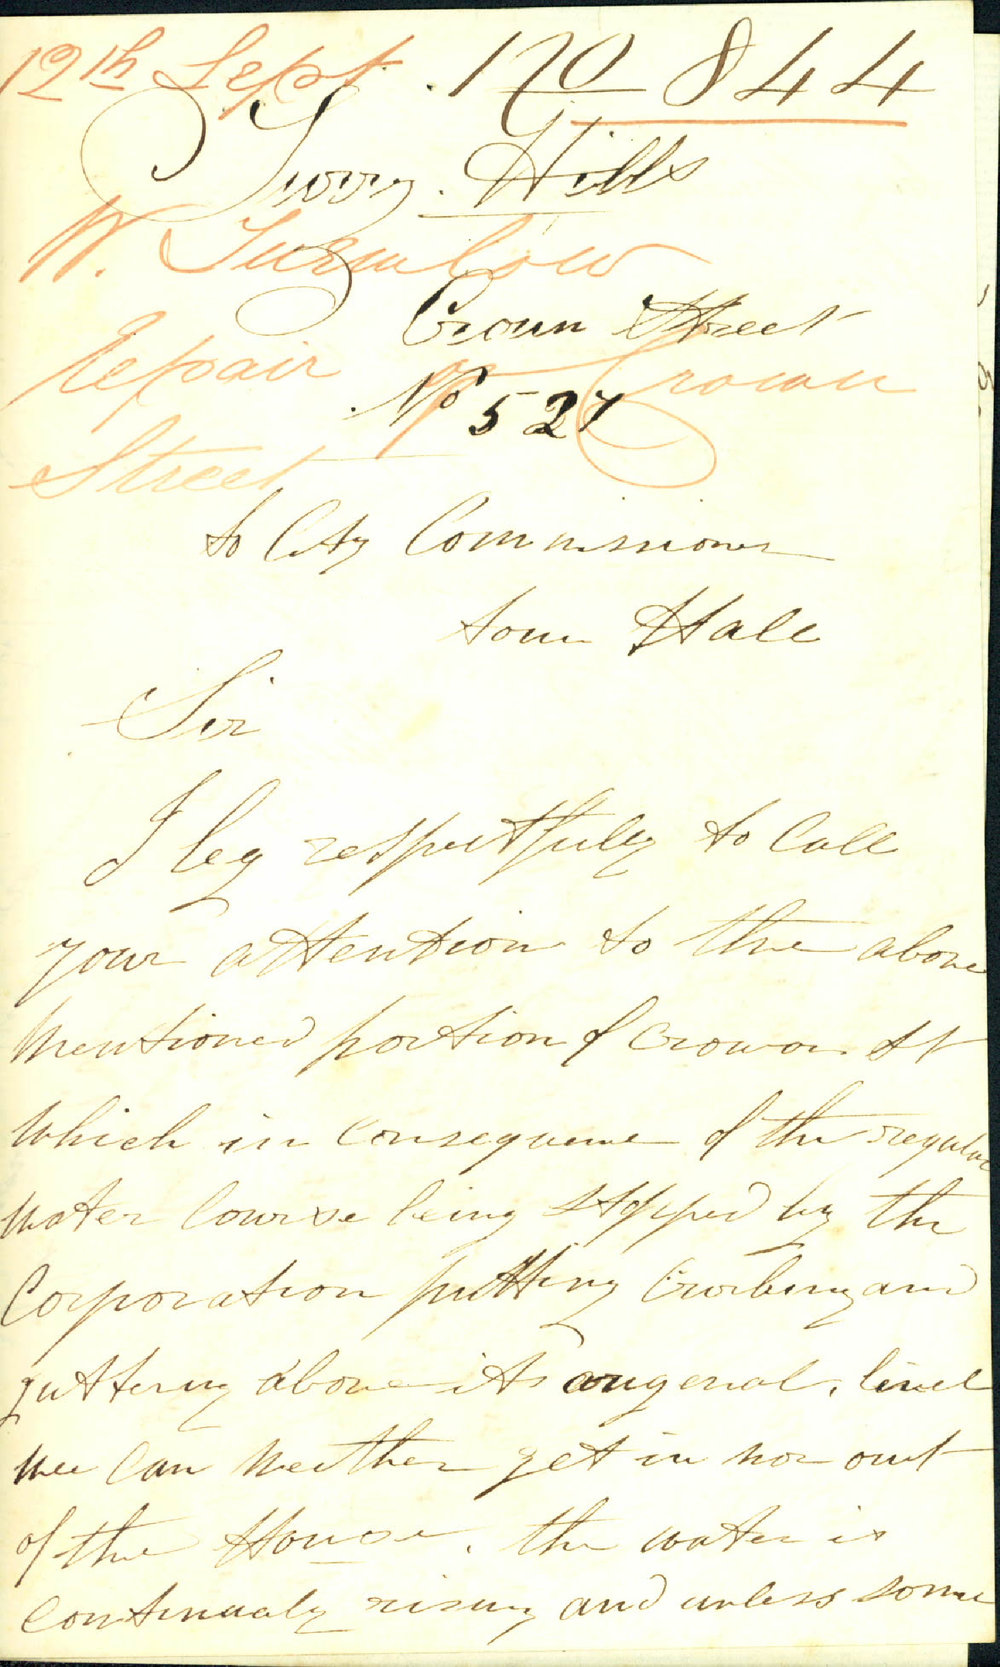 12th Sept. No 844
Surry Hills
W. Turnbow
Crown Street
Repair of Crown
No 527
Street
to City Commissioner
town Hall
Sir
I beg respectfuly to Call
your attention to the above
Mentioned portion of Crown St
Which in Consequence of the regular
water Course being stopped by the
Corporation putting Curbing and
guttering above its orugenal level
wee Can Neither get in nor out
of the House. the water is
Continualy rising and unless some